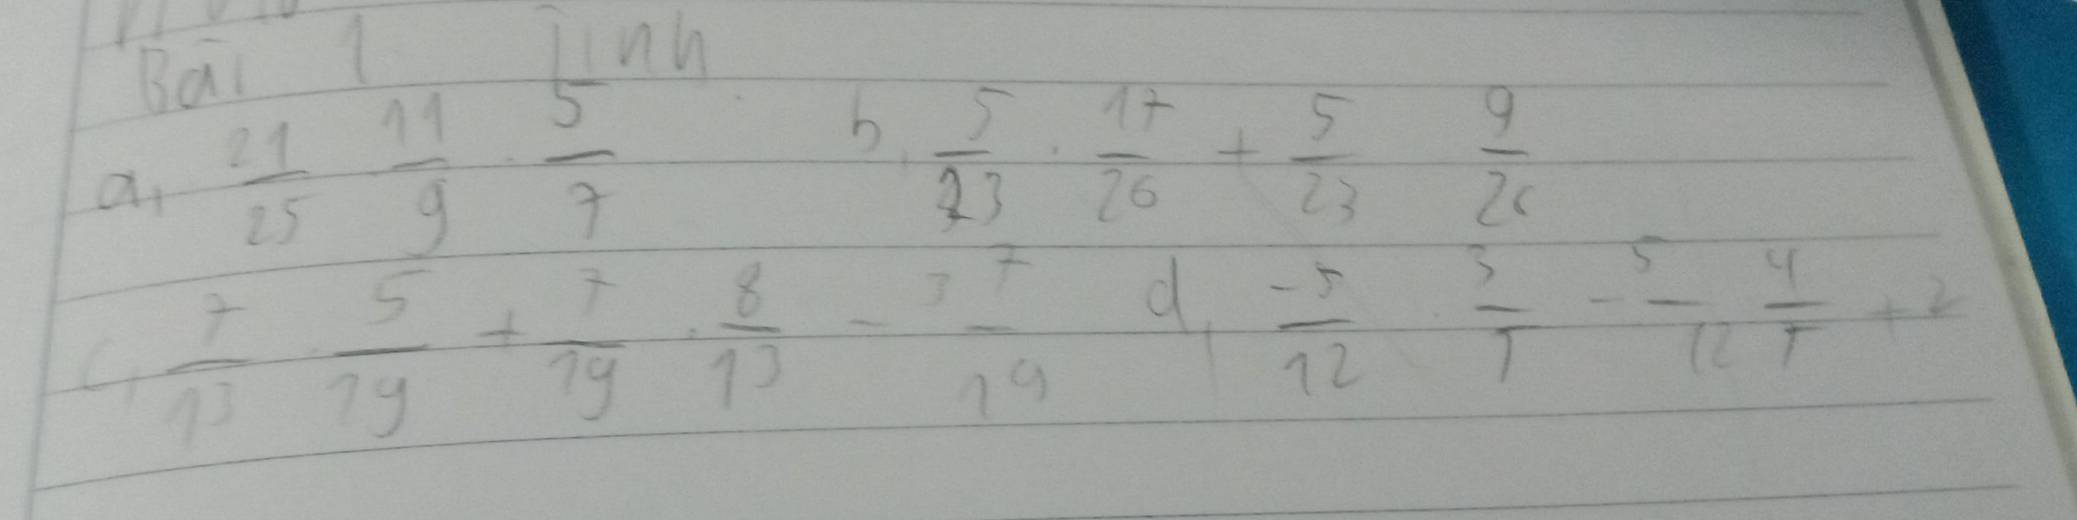 Bài 1 Tính
a, 21/25 11/9 . 5/7 b, 5/23 . 17/26 + 5/23 9/26
c, 7/13 . 5/19 + 7/19 . 8/13 - 3 7/19 d, -5/12 . 3/7 - 5/12 4/7 + 2